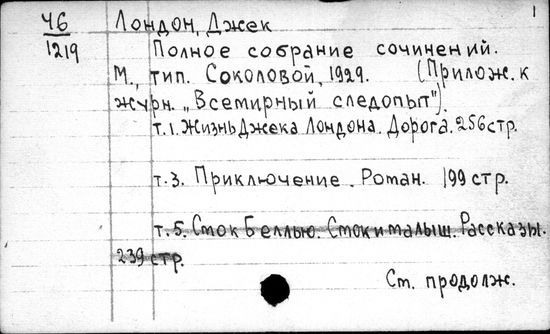 Ч6 Лондон, Джек 1
1219 Полное собрание сочинений.
М., тип. Соколовой, 1929. (Прилож. к
журн. „Всемирный следопыт").
т.1. Жизнь Джека Лондона. Дорога. 256 стр.
т.3. Приключение. Роман. 199 стр.
т.5. Сток Беллью. Сток и малыш. Рассказы.
239 стр.
Ст. продолж.